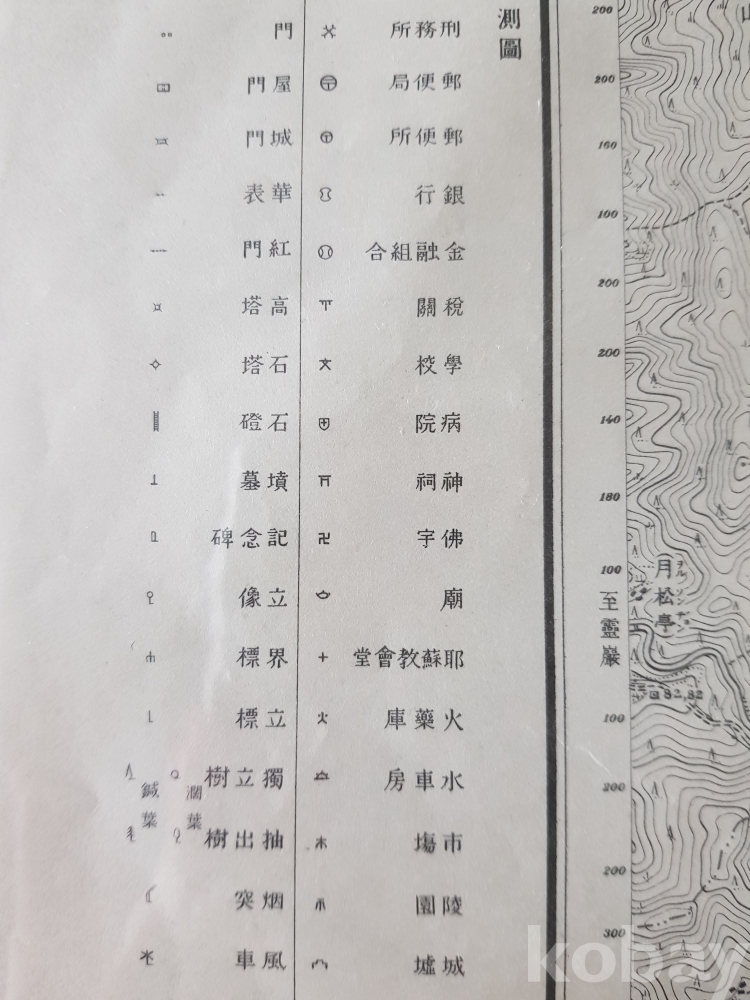 測圖
刑務所
郵便局
郵便所
銀行
金融組合
稅關
學校
病院
神祠
佛宇
廟
耶蘇教會堂
火藥庫
水車房
市塲
陵園
城墟
門
屋門
城門
華表
紅門
高塔
石塔
石磴
墳墓
記念碑
立像
界標
立標
獨立樹
抽出樹
濶葉
鍼葉
烟突
風車
200
200
160
100
200
200
140
180
100
至靈巖
100
200
200
300
月松亭
82.82
kobay